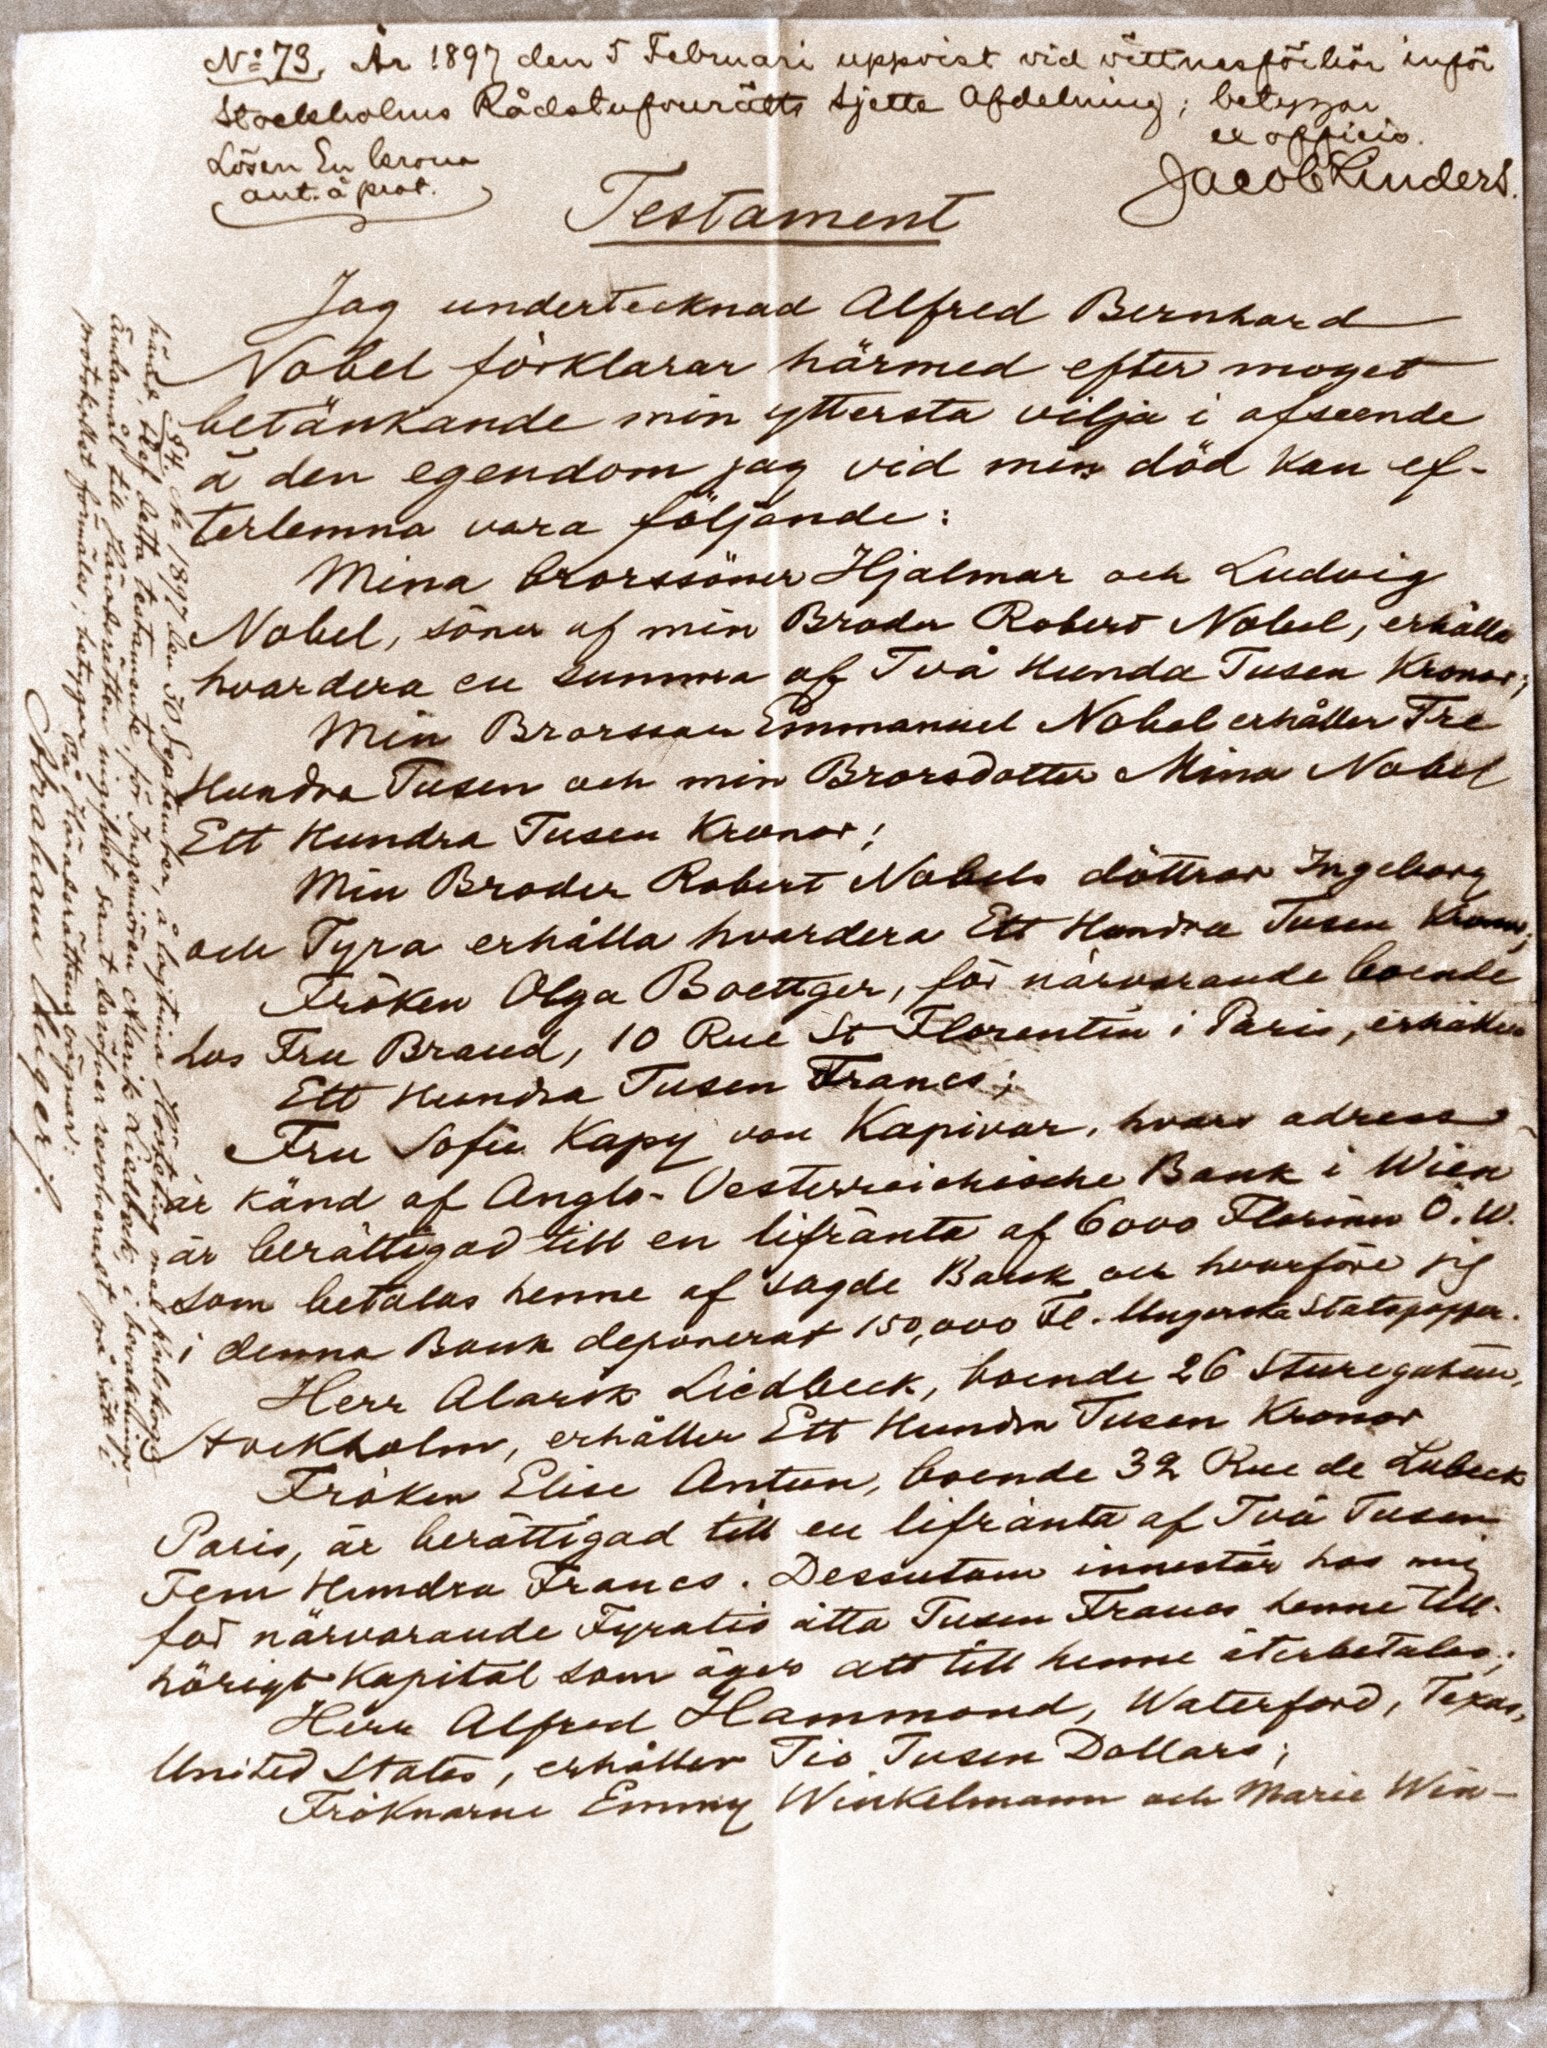 No 73. År 1897 den 5 Februari uppvist vid vittnesförhör inför
Stockholms Rådstufvurätts sjette Afdelning; betygar
ex officio.
Lösen En krona
ant. å prot.
Testament
Jag undertecknad Alfred Bernhard
Nobel förklarar härmed efter moget
betänkande min yttersta vilja i afseende
å den egendom jag vid min död kan ef-
terlemna vara följande:
Mina brorssöner Hjalmar och Ludvig
Nobel, söner af min Broder Robert Nobel, erhålla
hvardera en summa af Två Hunda Tusen Kronor;
Min Brorsson Emmanuel Nobel erhåller Tre
Hundra Tusen och min Brorsdotter Mina Nobel
Ett Hundra Tusen Kronor;
Min Broder Robert Nobels döttrar Ingeborg
och Tyra erhålla hvardera Ett Hundra Tusen Kronor;
Fröken Olga Boettger, för närvarande boende
hos Fru Brand, 10 Rue St Florentin i Paris, erhåller
Ett Hundra Tusen Francs;
Fru Sofie Kapy von Kapivar, hvars adress
är känd af Anglo-Oesterreichische Bank i Wien
är berättigad till en lifränta af 6000 Florins Ö.W.
som betalas henne af sagde Bank och hvarföre jag
i denna Bank deponerat 150,000 Fl. Ungerska Statspapper.
Herr Alarik Liedbeck, boende 26 Sturegatan,
Stockholm, erhåller Ett Hundra Tusen Kronor
Fröken Elise Antun, boende 32 Rue de Lubeck
Paris, är berättigad till en lifränta af Två Tusen
Fem Hundra Francs. Dessutom innestår hos mig
för närvarande Fyratio åtta Tusen Francs henne till-
hörigt Kapital som äger att till henne återbetalas;
Herr Alfred Hammond, Waterford, Texas,
United States, erhåller Tio Tusen Dollars;
Fröknarne Emmy Winkelmann och Marie Win-
År 1897 den 30 September, å lagtima Hösteting med Karlskoga
härad, blef detta testamente, för Ingeniören Alarik Liedbeck, i bevaknings-
ändamål till Häradsrätten ingifvet samt derefver sedt på sätt
protokollet förmäler; betygar
På Häradsrättens vägnar: